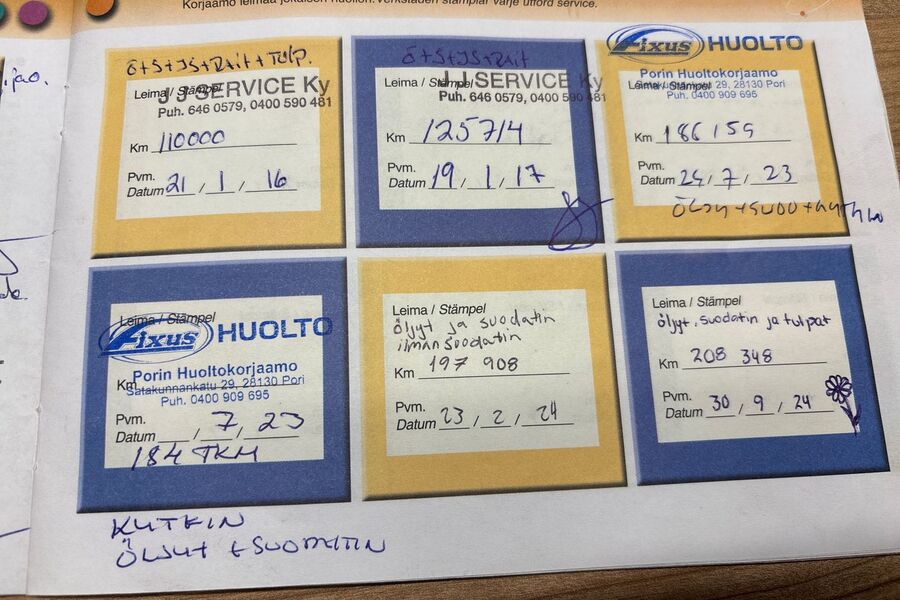 Korjaamo leimaa jokaisen huollon. Verkstaden stämplar varje utförd service.
Ö+S+IS+RAIT+TULP.
Leima / Stämpel
J J SERVICE Ky
Puh. 646 0579, 0400 590 481
Km 110000
Pvm.
Datum 21 / 1 / 16
Ö+S+IS+RAIT
Leima / Stämpel
J J SERVICE Ky
Puh. 646 0579, 0400 590 481
Km 125714
Pvm.
Datum 19 / 1 / 17
Fixus HUOLTO
Porin Huoltokorjaamo
Leima / Stämpel
Satakunnankatu 29, 28130 Pori
Puh. 0400 909 695
Km 186159
Pvm.
Datum 24 / 7 / 23
ÖLJY+SUOD+
Leima / Stämpel
Fixus HUOLTO
Porin Huoltokorjaamo
Km
Satakunnankatu 29, 28130 Pori
Puh. 0400 909 695
Pvm.
Datum / 7 / 23
184 TKM
ÖLJYT +SUODATIN
Leima / Stämpel
öljyt ja suodatin
ilmansuodatin
Km 197 908
Pvm.
Datum 23 / 2 / 24
Leima / Stämpel
öljyt, suodatin ja tulpat
Km 208 348
Pvm.
Datum 30 / 9 / 24